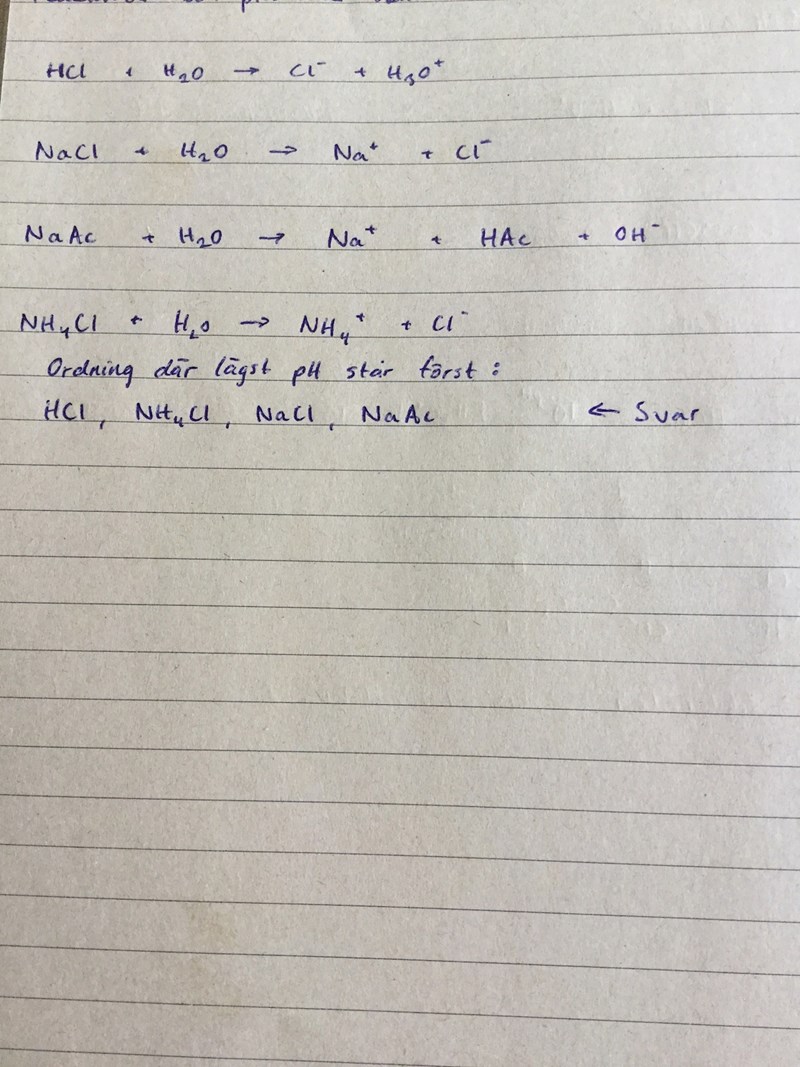 HCl + H₂O → Cl⁻ + H₃O⁺
NaCl + H₂O → Na⁺ + Cl⁻
NaAc + H₂O → Na⁺ + HAc + OH⁻
NH₄Cl + H₂O → NH₄⁺ + Cl⁻
Ordning där lägst pH står först:
HCl, NH₄Cl, NaCl, NaAc ← Svar